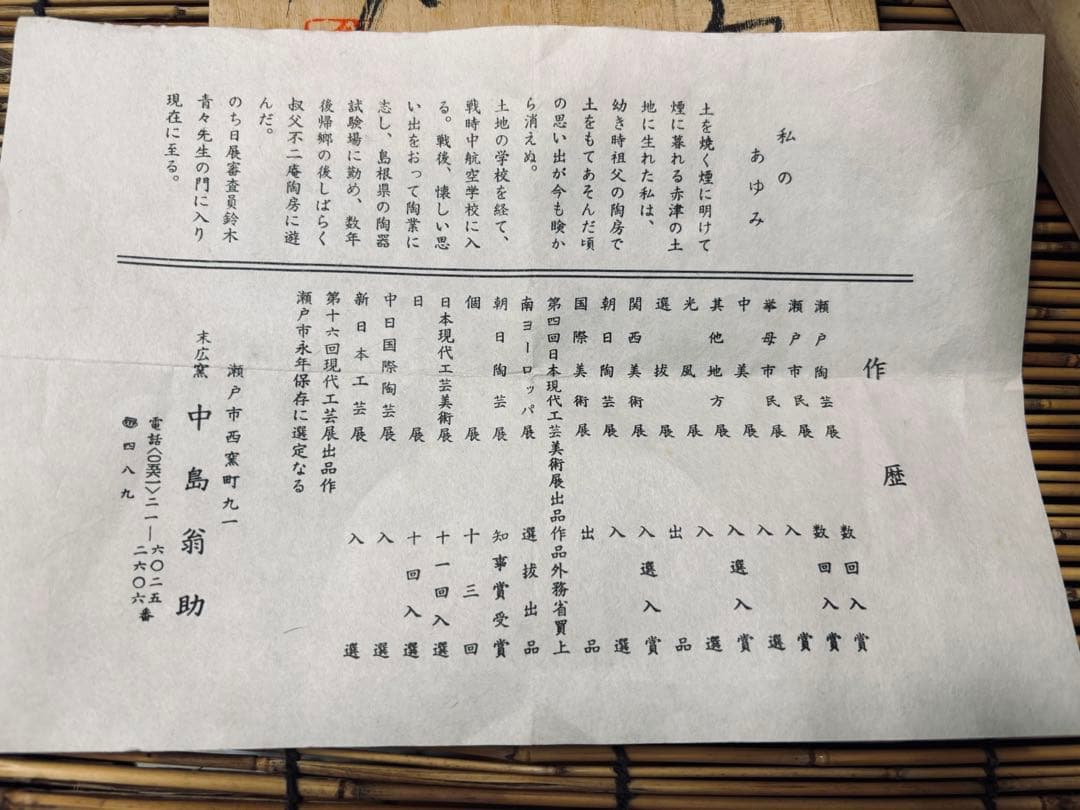 私の
あゆみ
土を焼く煙に明けて
煙に暮れる赤津の土
地に生れた私は、
幼き時祖父の陶房で
土をもてあそんだ頃
の思い出が今も暎か
ら消えぬ。
土地の学校を経て、
戦時中航空学校に入
る。戦後、懐しい思
い出をおって陶業に
志し、島根県の陶器
試験場に勤め、数年
後帰郷の後しばらく
叔父不二庵陶房に遊
んだ。
のち日展審査員鈴木
青々先生の門に入り
現在に至る。
作歴
瀬戸陶芸展 数回入賞
瀬戸市民展 数回入賞
挙母市民展 入賞
中美展 入選
其他地方展 入選入賞
光風展 入選
選抜展 出品
関西美術展 入選入賞
朝日陶芸展 入選
国際美術展 出品
第四回日本現代工芸美術展出品作品外務省買上
南ヨーロッパ展 選抜出品
朝日陶芸展 知事賞受賞
個展 十三回
日本現代工芸美術展 十一回入選
日展 十回入選
中日国際陶芸展 入選
新日本工芸展 入選
第十六回現代工芸展出品作
瀬戸市永年保存に選定なる
瀬戸市西窯町九一
末広窯 中島翁助
電話〈〇五六一〉二一―六〇二五
二六〇六番
四八九